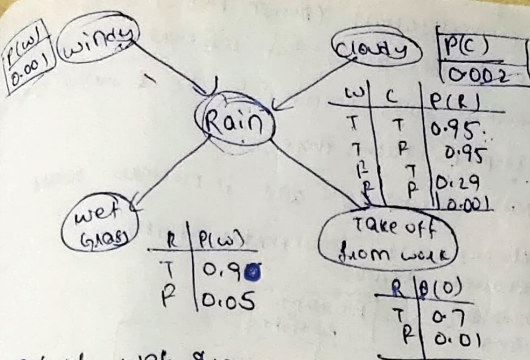 P(w)
0.001
windy
cloudy
P(C)
0.002
Rain
W C P(R)
T T 0.95
T F 0.95
F T 0.29
F F 0.001
wet
Grass
R P(w)
T 0.90
F 0.05
Take off
from work
R P(O)
T 0.7
F 0.01